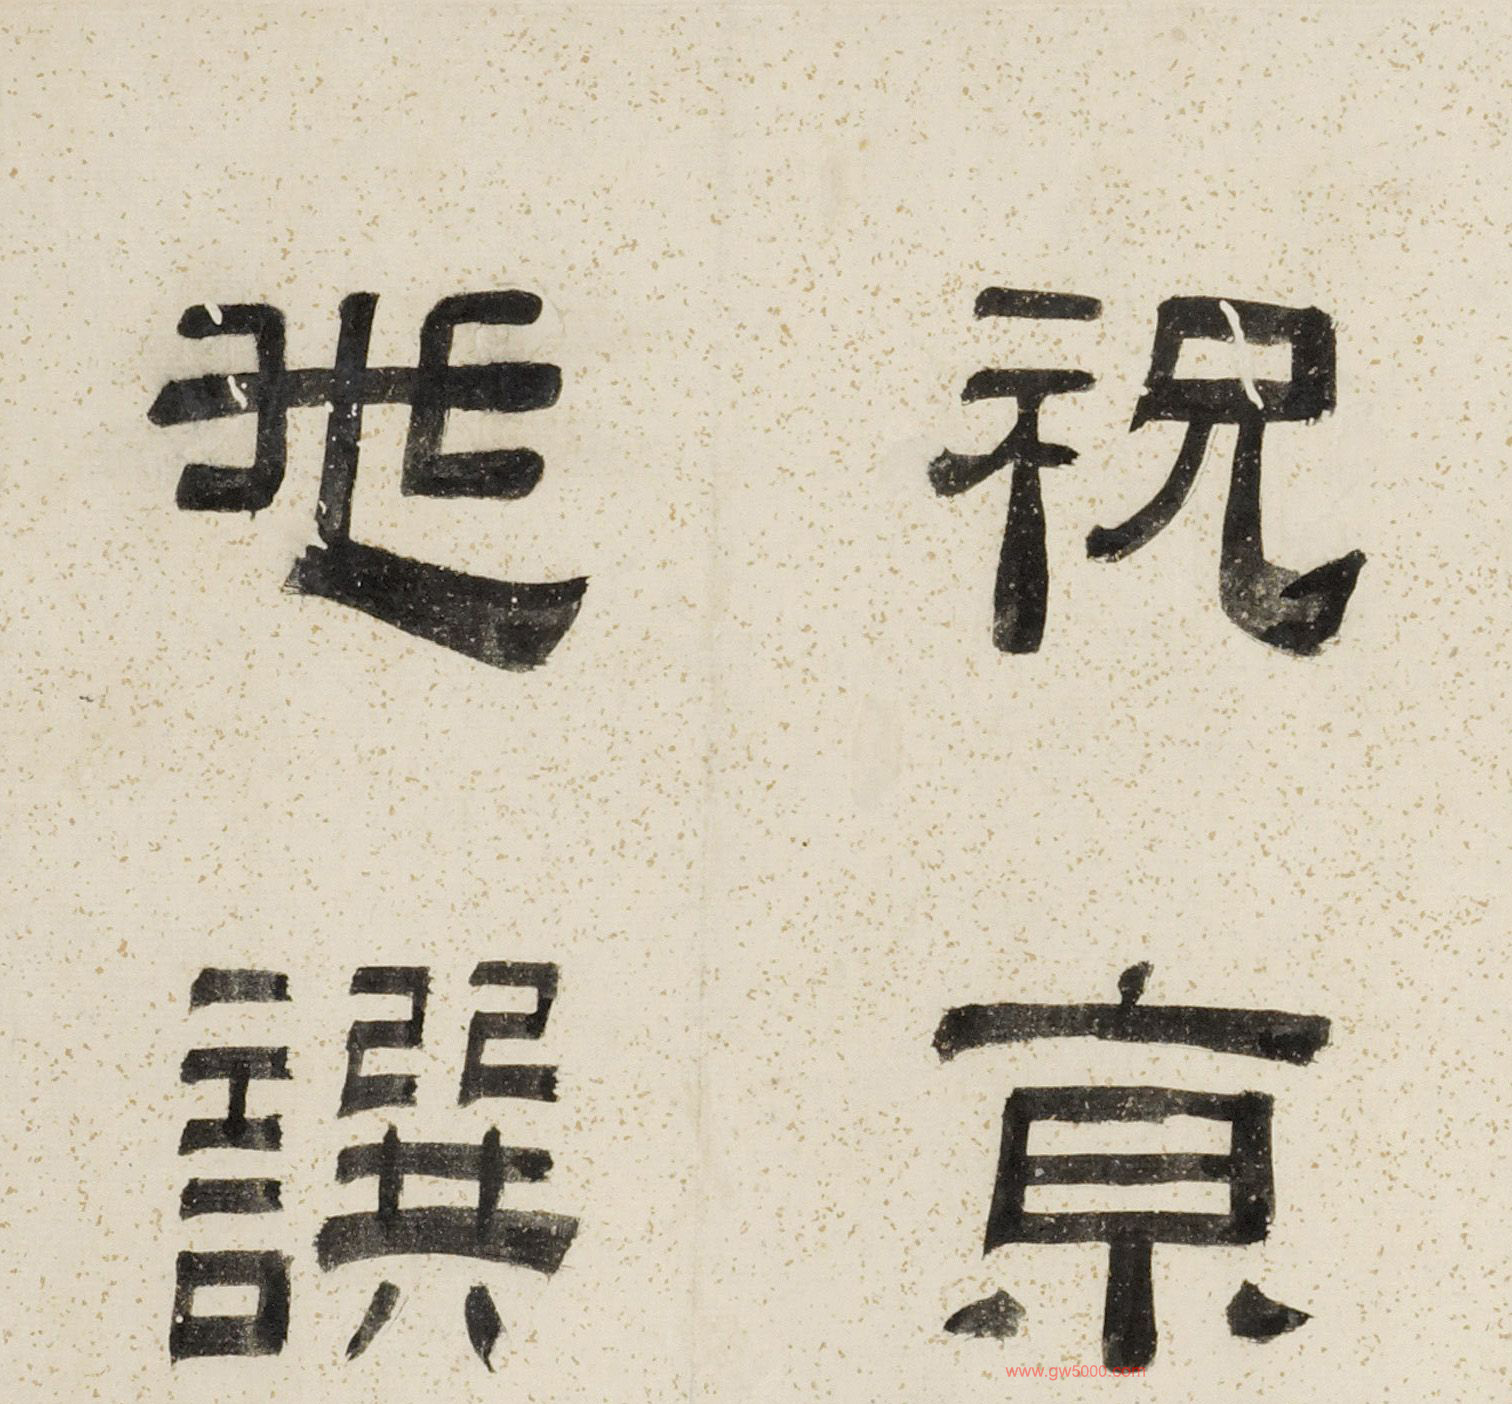 祝亰
兆譔
www.gw5000.com